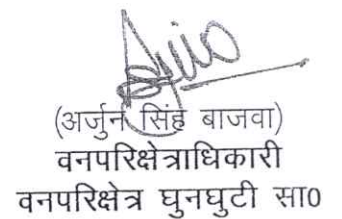 (अर्जुन सिंह बाजवा)
वनपरिक्षेत्राधिकारी
वनपरिक्षेत्र घुनघुटी सा0